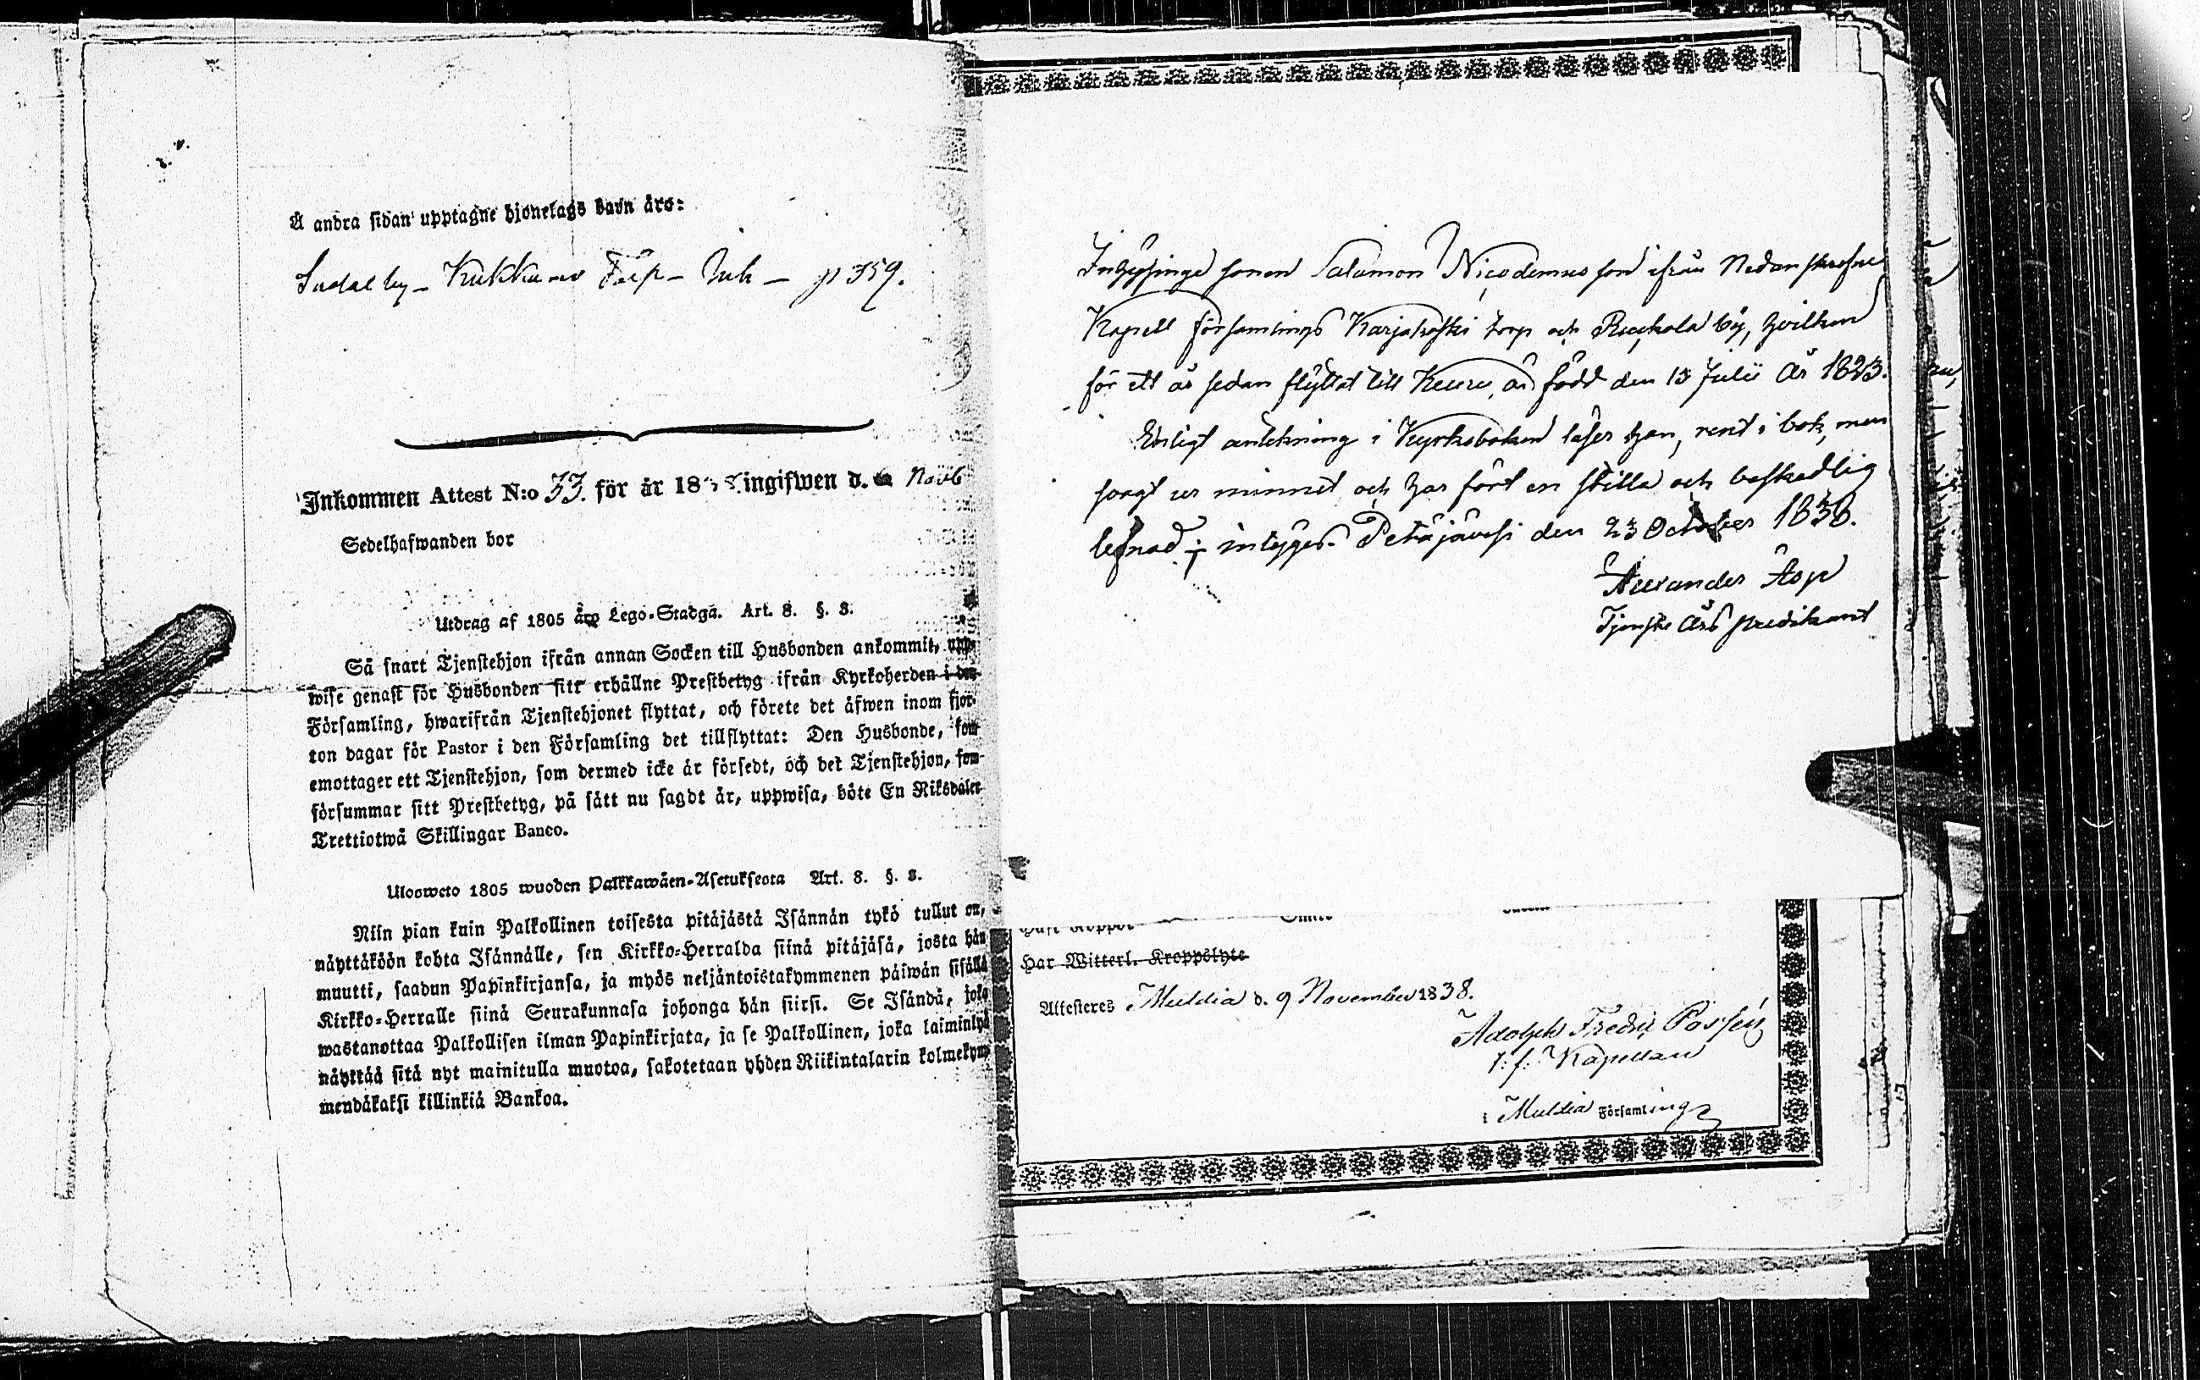 Å andra sidan upptagne hjonelags barn äro:
Kukkaro Torp — p 359.
Inkommen Attest N:o 33. för år 1838. ingifwen d. Novb
Sedelhafwanden bor
Utdrag af 1805 års Lego-Stadga. Art. 8. §. 3.
Så snart Tjenstehjon ifrån annan Socken till Husbonden ankommit, upp-
wise genast för Husbonden sitt erhållne Prestbetyg ifrån Kyrkoherden i den
Församling, hwarifrån Tjenstehjonet flyttat, och förete det äfwen inom fjor-
ton dagar för Pastor i den Församling det tillflyttat: Den Husbonde, som
emottager ett Tjenstehjon, som dermed icke är försedt, och det Tjenstehjon, som
försummar sitt Prestbetyg, på sätt nu sagdt är, uppwisa, böte En Riksdaler
Trettiotwå Skillingar Banco.
Ulosweto 1805 wuoden Palkkawäen-Asetuksesta Art. 8. §. 3.
Niin pian kuin Palkollinen toisesta pitäjästä Isännän tykö tullut on,
näyttäköön kohta Isännälle, sen Kirkko-Herralda siinä pitäjäsä, josta hän
muutti, saadun Papinkirjansa, ja myös neljäntoistakymmenen päiwän sisällä
Kirkko-Herralle siinä Seurakunnasa johonga hän siirsi. Se Isändä, joka
wastanottaa Palkollisen ilman Papinkirjata, ja se Palkollinen, joka laiminlyö
näyttää sitä nyt mainitulla muotoa, sakotetaan yhden Riikintalarin kolmekym-
mendäkaksi killinkiä Bankoa.
Inhysinge sonen Salomon Nicodemusson ifrån Nedanskrefne
Kapell församlings Karjakoski torp och Ruokola by, hvilken
för ett år sedan flyttat till Keuru, är född den 13 Julii år 1823.
Enligt antekning i Kyrkoboken läser han, rent i bok, men
svagt ur minnet och har fört en stilla och beskedlig
lefnad; intygges. Petäjävesi den 23 October 1838.
Alexander Asp
Tjenste års predikant
Har Witterl. Kroppslyte
Attesteres Muldia d. 9 November 1838.
Adolph Fredric Possén
t. f. Kapellan
i Muldia Församling